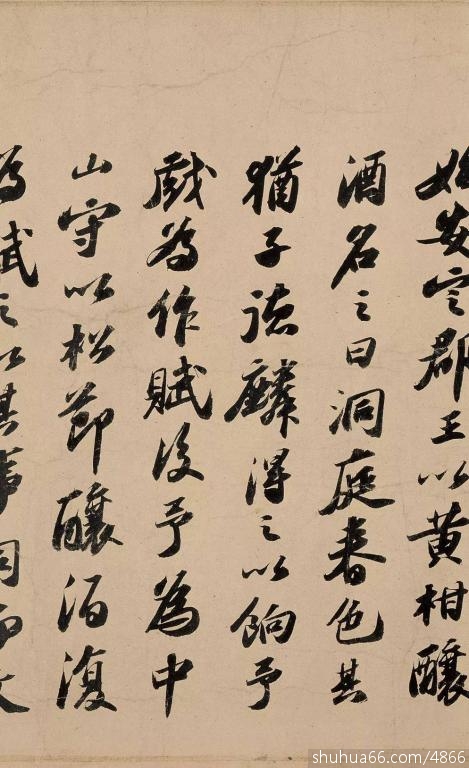 始安定郡王以黄柑釀
酒名之曰洞庭春色其
猶子德麟得之以餉予
戲為作賦後予為中
山守以松節釀酒復
為賦之以其事同而文
shuhua66.com/4866